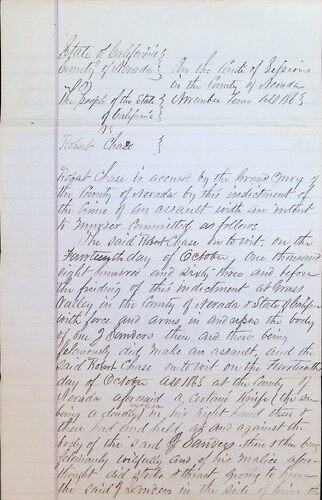 State of California }
County of Nevada } In the Court of Sessions
in the County of Nevada
The People of the State } November Term AD 1863
of California
vs
Robert Chase }
Robert Chase is accused by the Grand Jury of
the County of Nevada by this indictment of
the Crime of an assault with an intent
to Murder Committed as follows
The said Robert Chase on to wit, on the
Fourteenth day of October, One thousand
eight hundred and sixty three and before
the finding of this indictment at Grass
Valley in the County of Nevada & State of
with force and arms in and upon the body
of one J Sanders then and there being
feloniously did make an assault, and the
said Robert Chase on to wit on the Fourteenth
day of October AD 1863 at the County of
Nevada aforesaid a certain knife (the same
being a deadly in his right hand then &
there had and held, at and against the
body of the said J Sanders then & there being
feloniously wilfully and of his malice afore
thought did strike & thrust giving to
the said J Sanders in the side of him